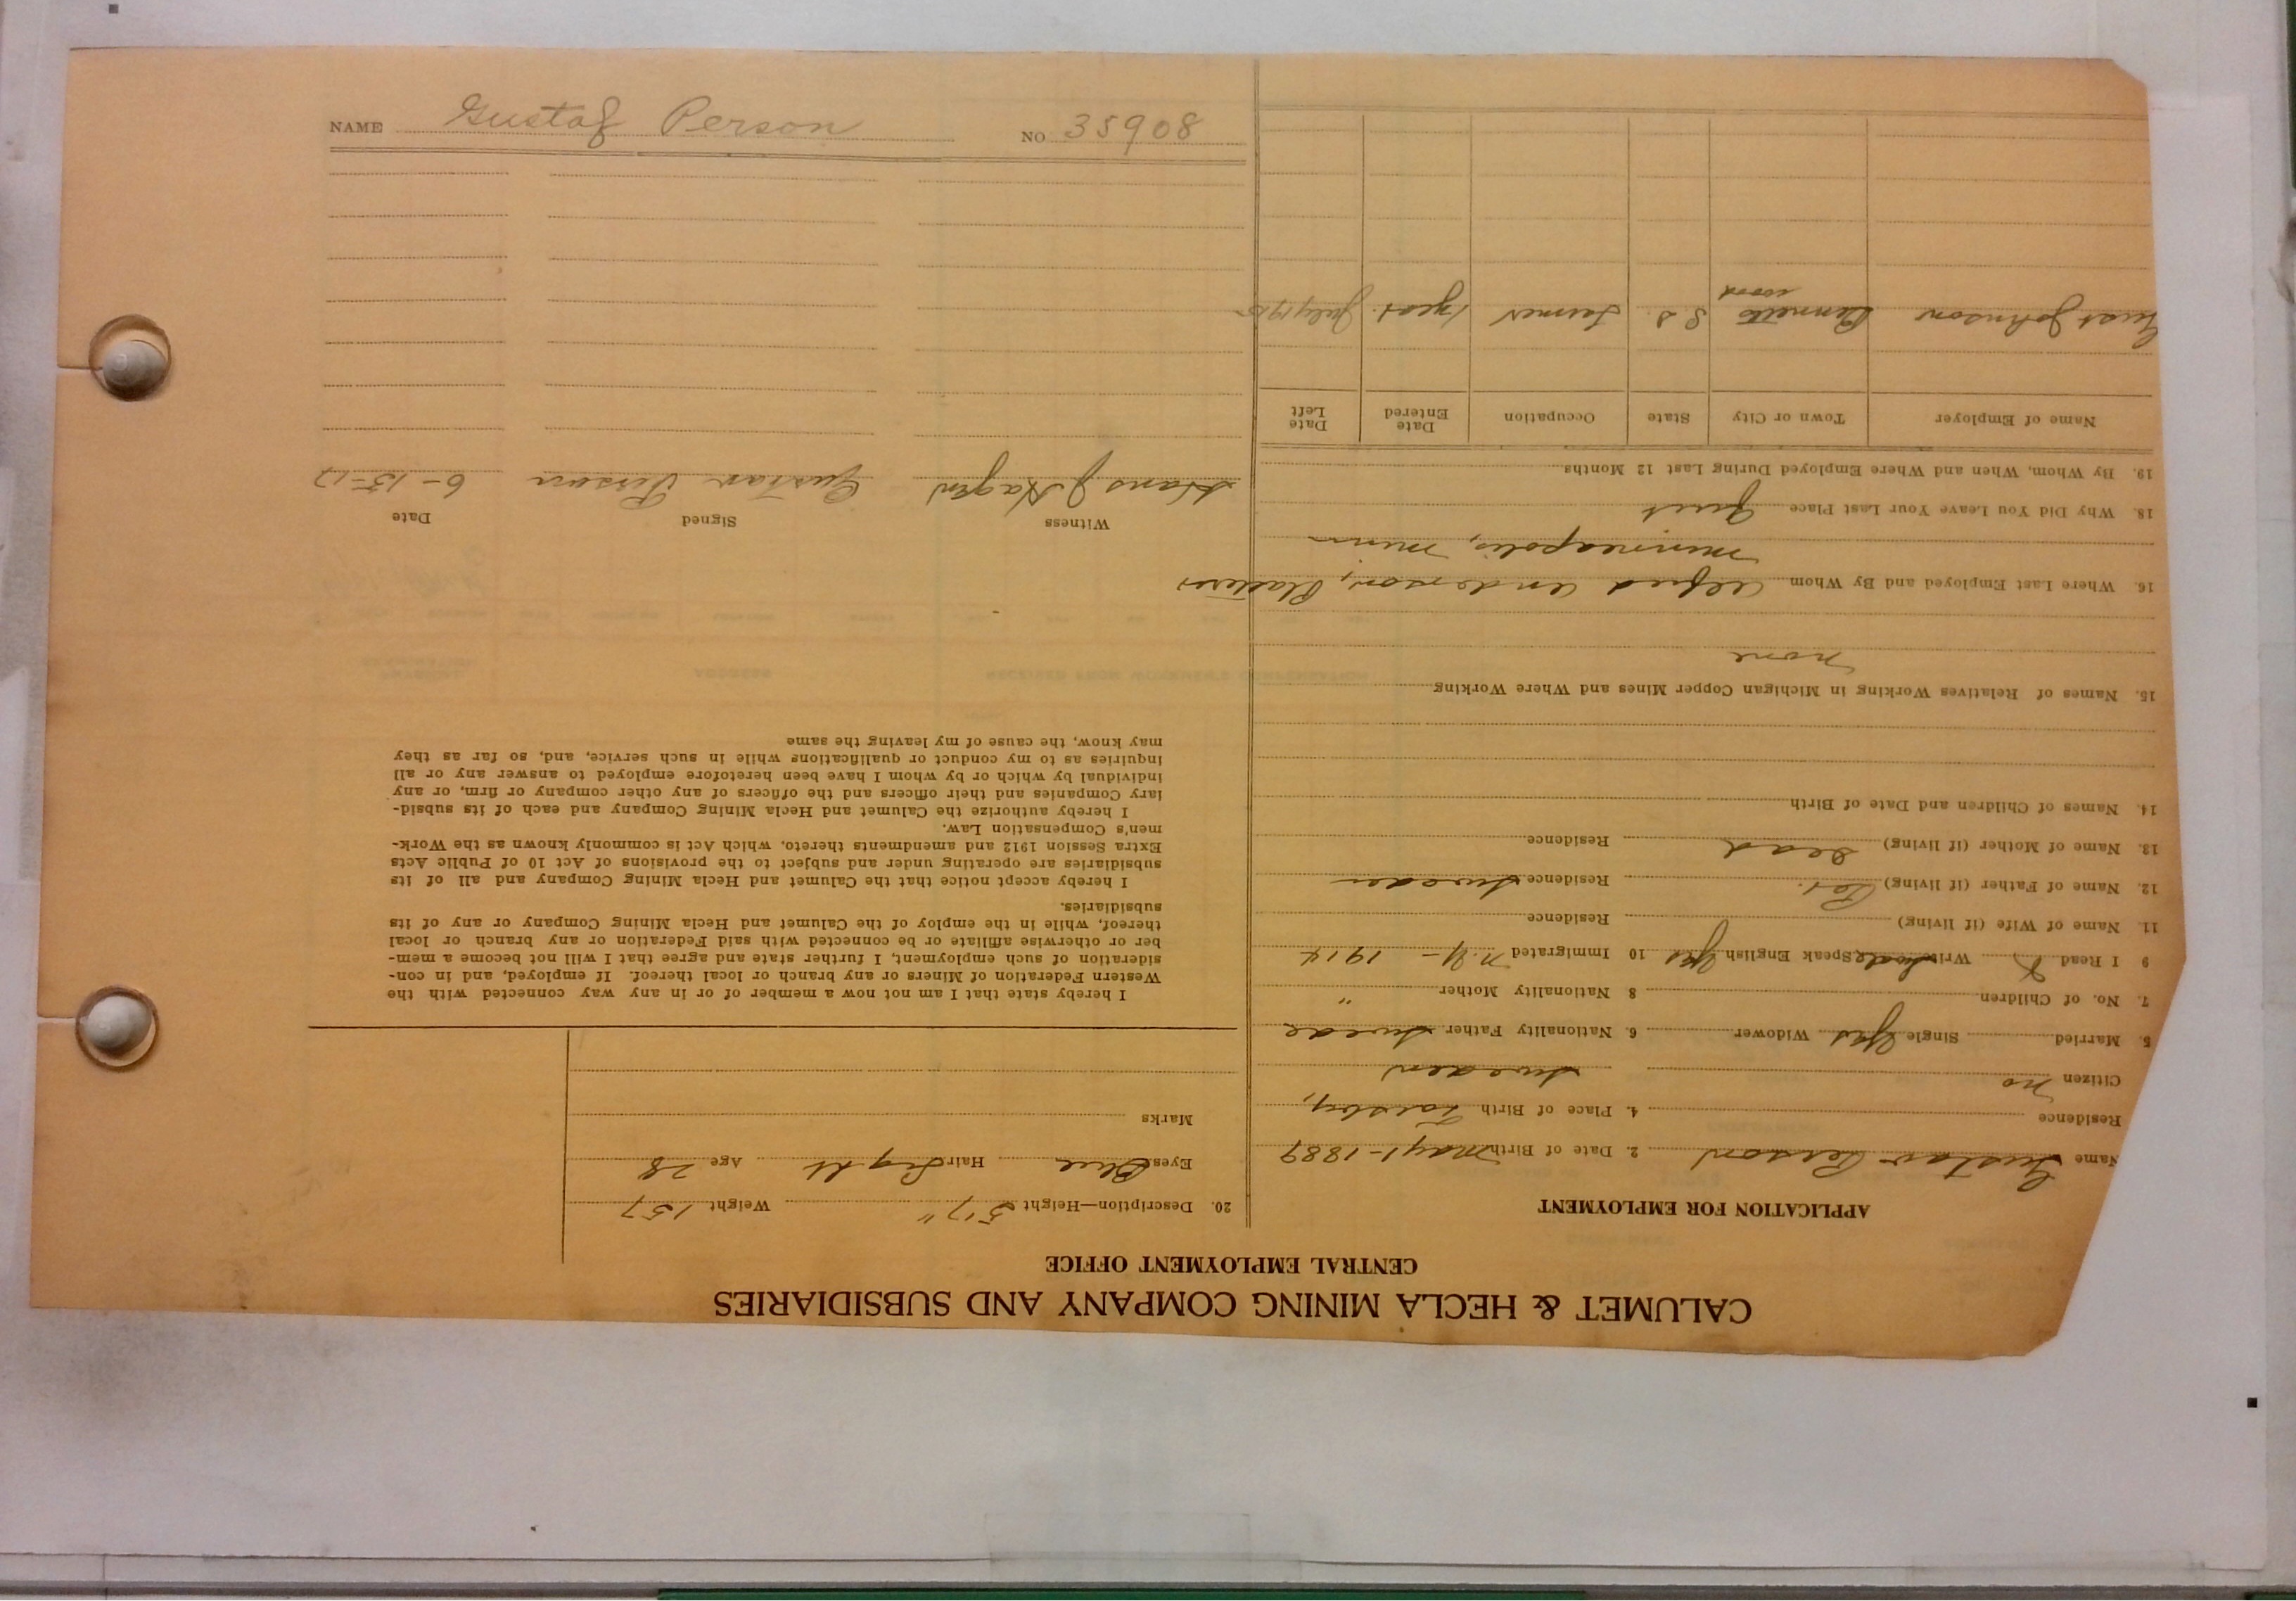 CALUMET & HECLA MINING COMPANY AND SUBSIDIARIES
CENTRAL EMPLOYMENT OFFICE
APPLICATION FOR EMPLOYMENT
Name Gustav Person 2. Date of Birth May 1-1889
Residence 4. Place of Birth
Citizen no Sweden
5. Married Single Yes Widower 6. Nationality Father Swede
7. No. of Children 8 Nationality Mother "
9 I Read Write Speak English Yes 10 Immigrated N.Y- 1914
11. Name of Wife (if living) Residence
12. Name of Father (if living) Residence Sweden
13. Name of Mother (if living) Dead Residence
14. Names of Children and Date of Birth
15. Names of Relatives Working in Michigan Copper Mines and Where Working
none
16. Where Last Employed and By Whom Alfred Anderson,
Minneapolis, Minn
18. Why Did You Leave Your Last Place Quit
19. By Whom, When and Where Employed During Last 12 Months
Name of Employer Town or City State Occupation Date Entered Date Left
Gust Johnson S D. Farmer 1 year July 1915
20. Description—Height 5'7" Weight 157
Eyes Blue Hair Light Age 28
Marks
I hereby state that I am not now a member of or in any way connected with the
Western Federation of Miners or any branch or local thereof. If employed, and in con-
sideration of such employment, I further state and agree that I will not become a mem-
ber or otherwise affiliate or be connected with said Federation or any branch or local
thereof, while in the employ of the Calumet and Hecla Mining Company or any of its
subsidiaries.
I hereby accept notice that the Calumet and Hecla Mining Company and all of its
subsidiaries are operating under and subject to the provisions of Act 10 of Public Acts
Extra Session 1912 and amendments thereto, which Act is commonly known as the Work-
men's Compensation Law.
I hereby authorize the Calumet and Hecla Mining Company and each of its subsid-
iary Companies and their officers and the officers of any other company or firm, or any
individual by which or by whom I have been heretofore employed to answer any or all
inquiries as to my conduct or qualifications while in such service, and, so far as they
may know, the cause of my leaving the same
Witness Signed Date
Hans J Hagen Gustav Person 6-15-17
NAME Gustaf Person NO 35908